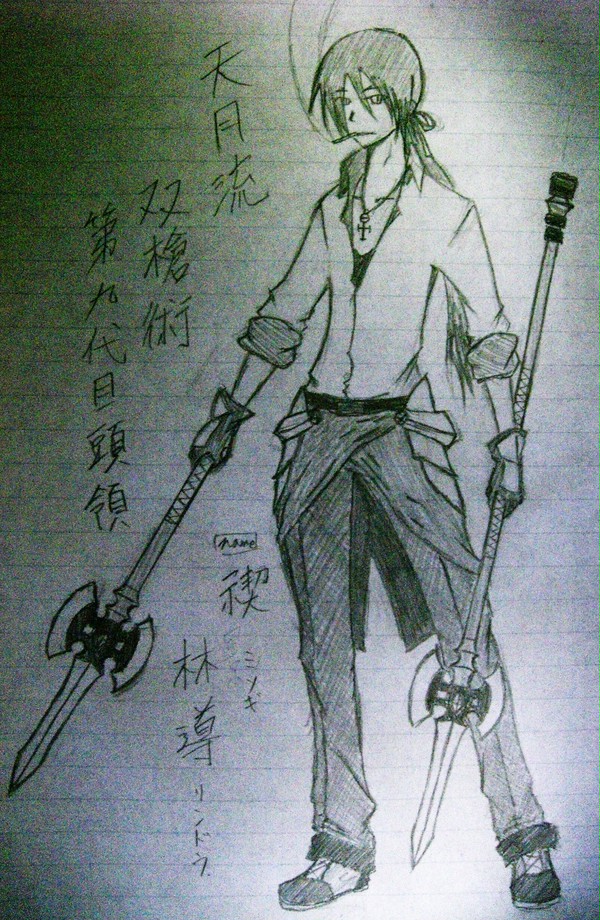 天月流
双槍術
第九代目頭領
name
禊
ミソギ
林導
リンドウ